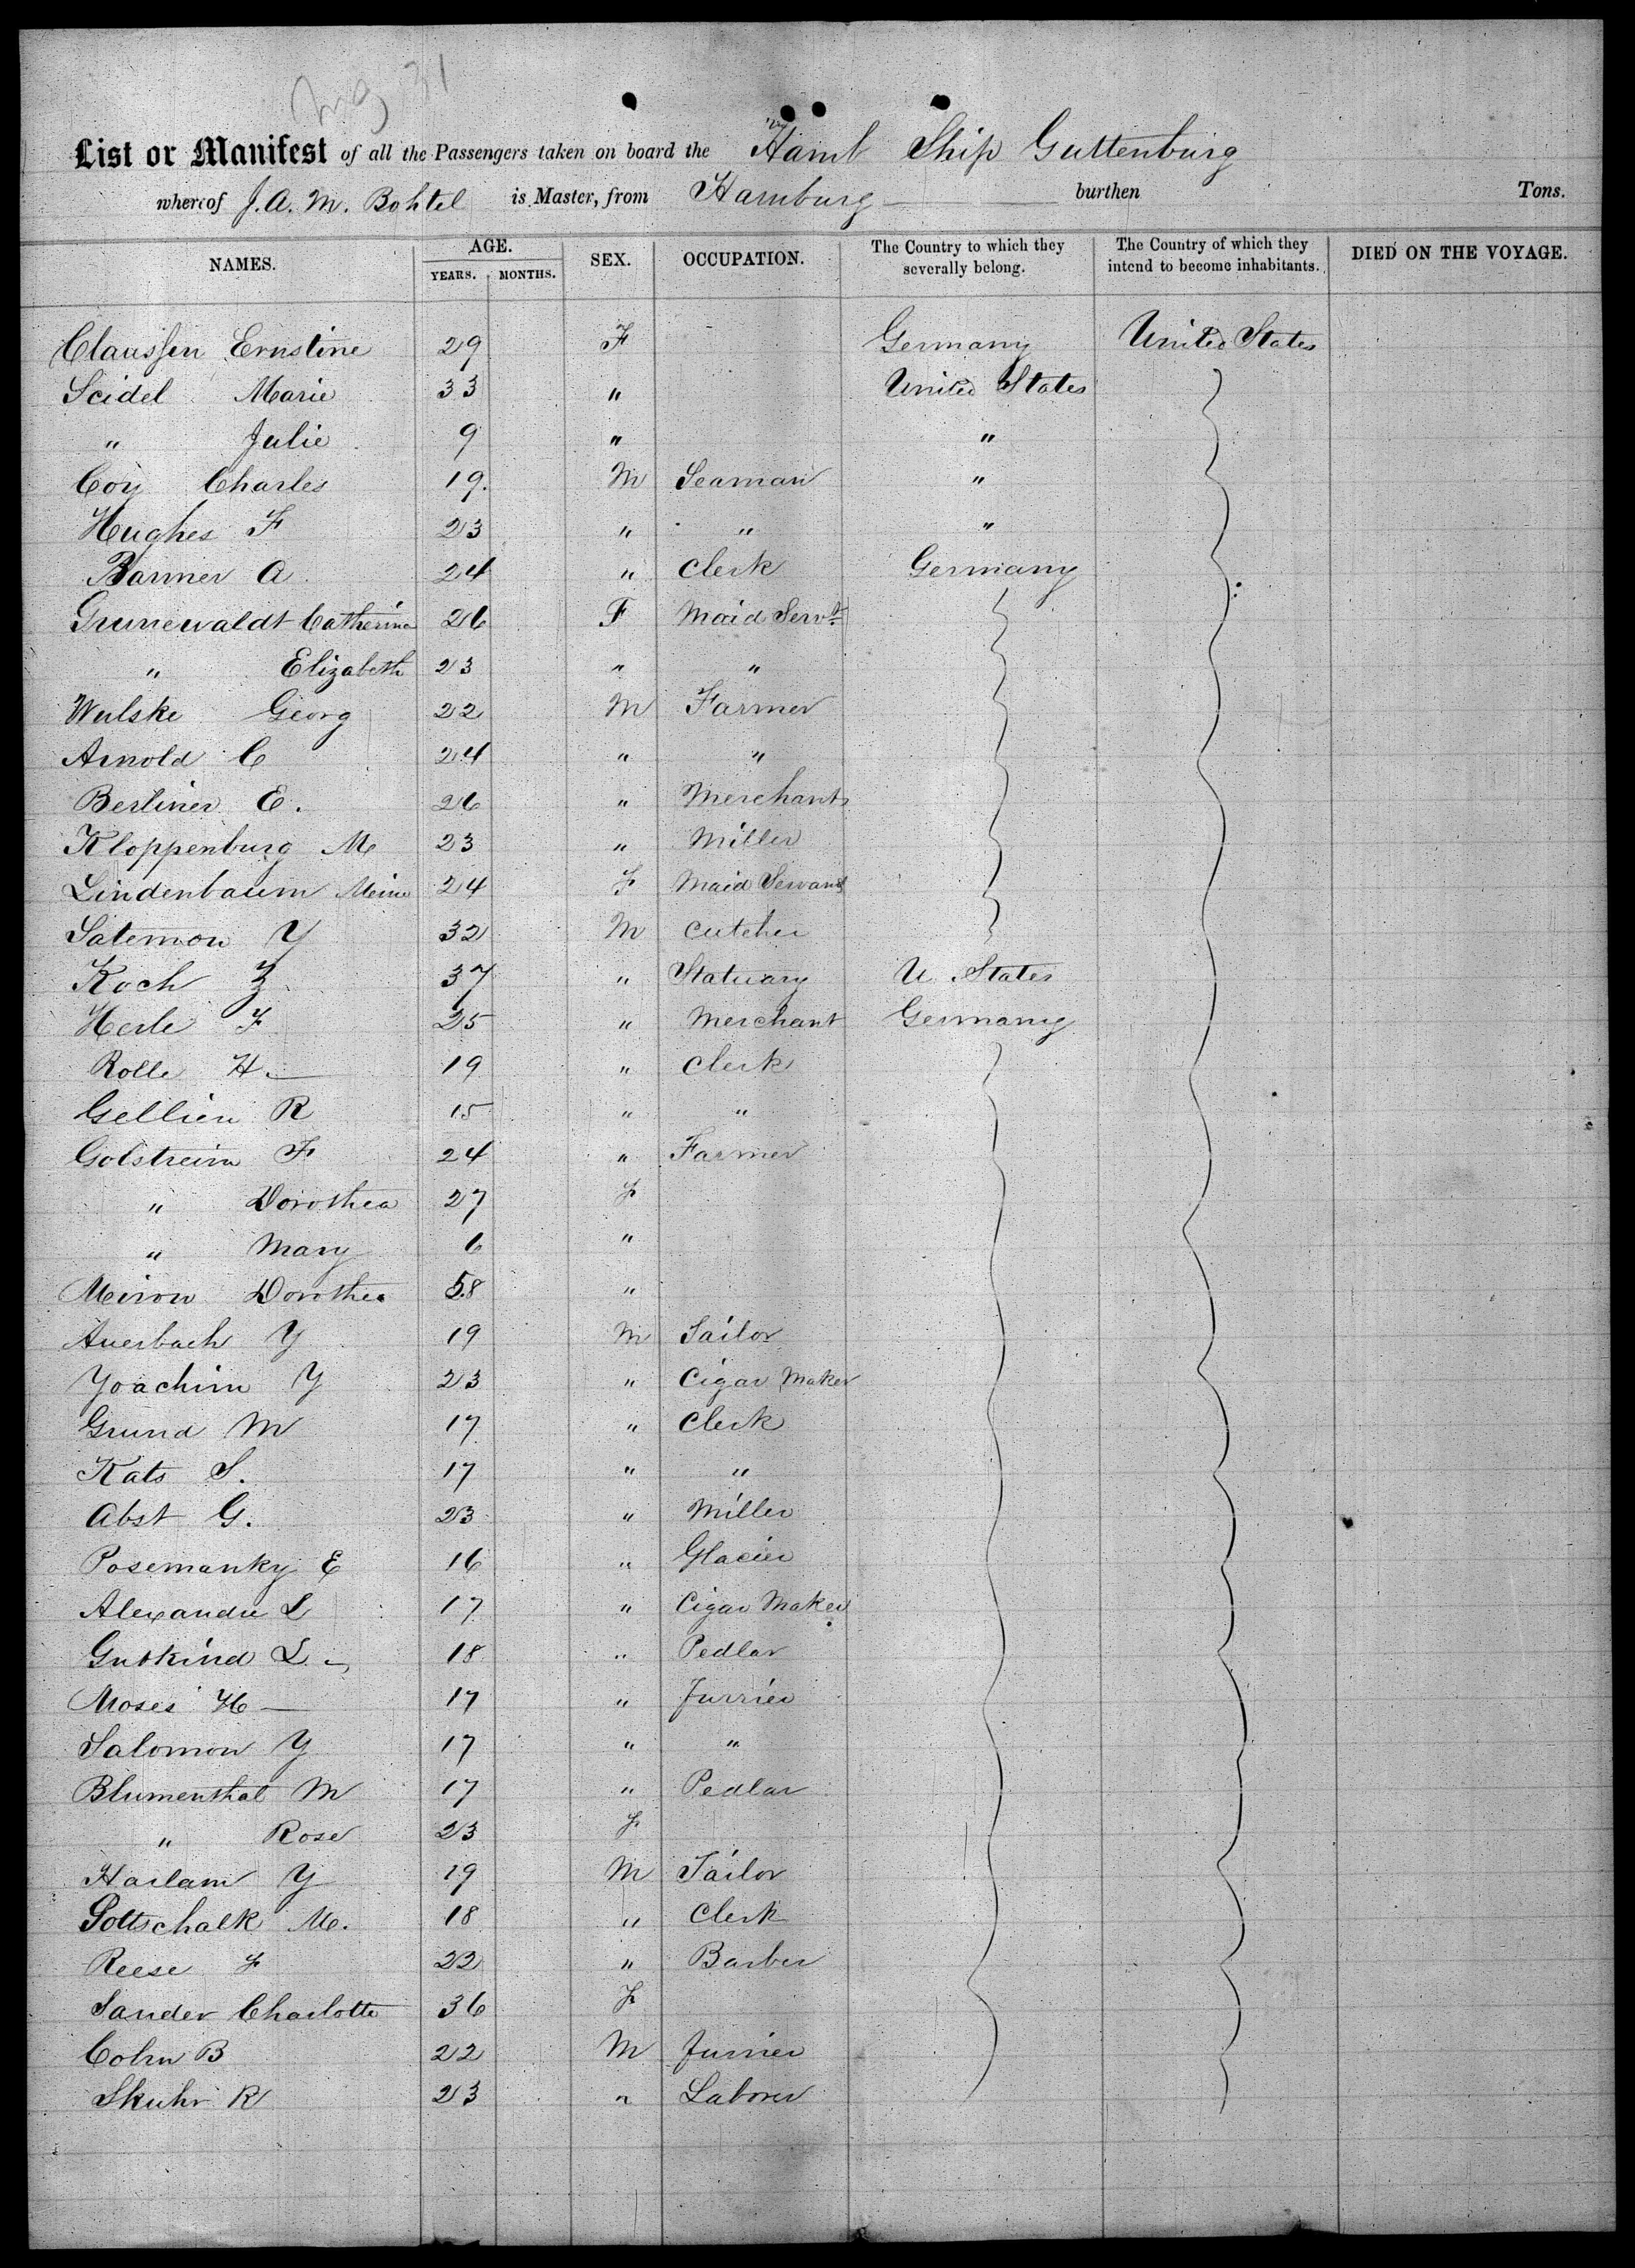 Aug 31
List or Manifest of all the Passengers taken on board the Hamb Ship Guttenburg
whereof J. A. M. Bohtel is Master, from Hamburg burthen Tons.
NAMES. AGE. YEARS. MONTHS. SEX. OCCUPATION. The Country to which they severally belong. The Country of which they intend to become inhabitants. DIED ON THE VOYAGE.
Claussen Ernstine 29 F Germany United States
Seidel Marie 33 " United States
" Julie 9 " "
Coij Charles 19. M Seaman "
Hughes F 23 " " "
Barmer A 24 " Clerk Germany
Grunewaldt Catherina 26 F Maid Servt
" Elizabeth 23 " "
Wulske Georg 22 M Farmer
Arnold C 24 " "
Berliner E. 26 " Merchant
Kloppenburg M 23 " Miller
Lindenbaum 24 F Maid Servant
Satemon Y 32 M cutcher
Koch Z 37 " Statuary U. States
Herle F 25 " Merchant Germany
Rolle H. 19 " Clerk
Gellien R 15 " "
Golstreim F 24 " Farmer
" Dorothea 27 F
" Mary 6 "
Meiron Dorothea 58 "
Auerbach Y 19 M Tailor
Yoachim Y 23 " Cigar Maker
Grund M 17 " Clerk
Kats S. 17 " "
Abst G. 23 " Miller
Posemanky E 16 " Glacier
Alexandre L 17 " Cigar Maker
Gutkind L 18 " Pedlar
Moses H 17 " Furrier
Salomon Y 17 " "
Blumenthal M 17 " Pedlar
" Rose 23 F
Harlam Y 19 M Tailor
Gottschalk M. 18 " Clerk
Reese F 22 " Barber
Sander Charlotte 36 F
Cohn B 22 M Furrier
Skuhr R 23 " Laborer